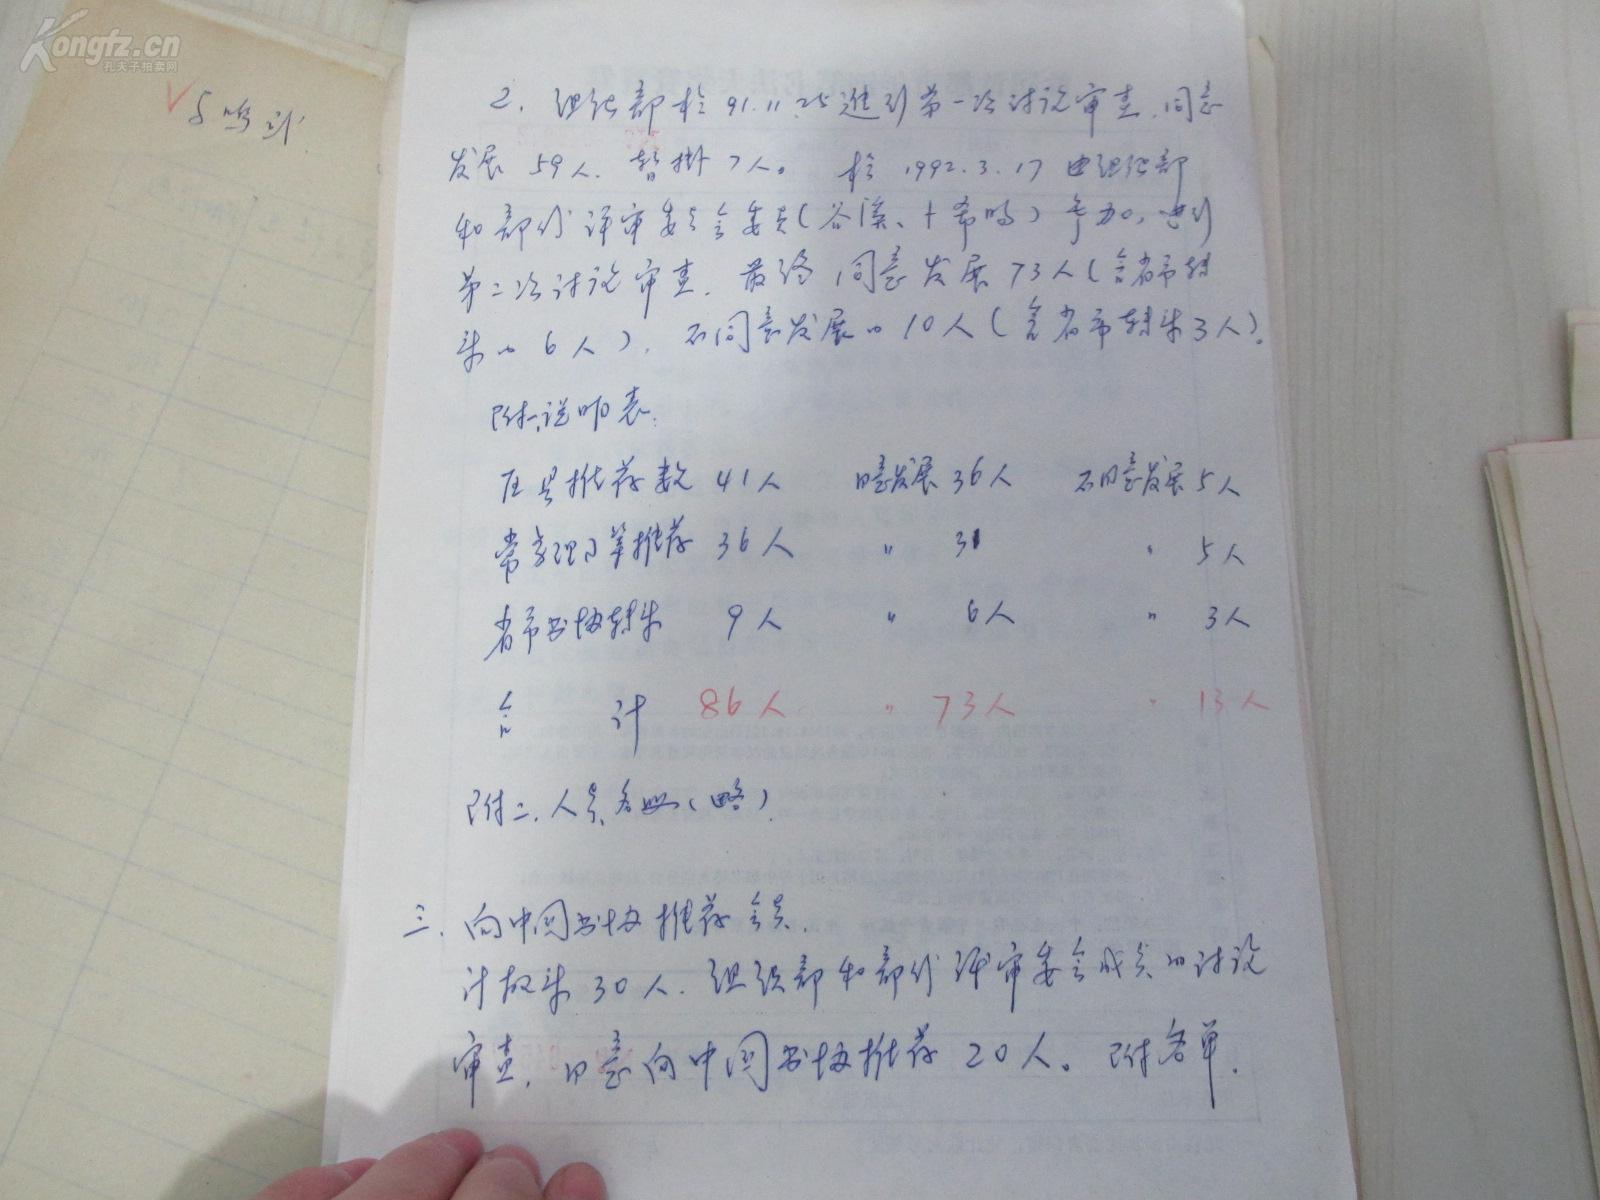 Kongfz.cn
孔夫子拍卖网
2. 组织部於91.11.25进行第一次讨论审查,同意
发展59人,暂掛7人。於1992.3.17由组织部
和部份评审委员会委员(谷溪、卜希旸)参加,进行
第二次讨论审查,最终同意发展73人(含省市转
来的6人),不同意发展的10人(含省市转来3人)。
附一,说明表:
区县推荐数 41人 同意发展36人 不同意发展5人
常务理事推荐 36人 〃 31 〃 5人
省市书协转来 9人 〃 6人 〃 3人
合计 86人 〃 73人 〃 13人
附二,人员名册(略)
三、向中国书协推荐会员.
计报来30人,组织部和部份评审委会成员的讨论
审查,同意向中国书协推荐20人。附名单.